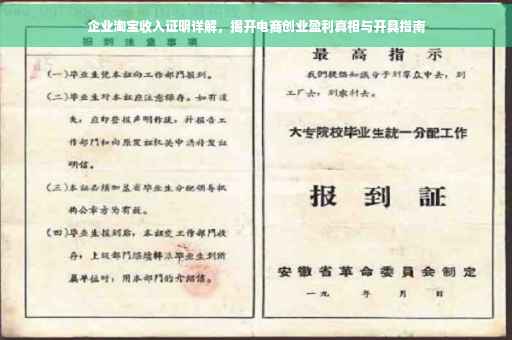 企业淘宝收入证明详解，揭开电商创业盈利真相与开具指南
报到注意事项
（一）毕业生凭本证向工作部门报到。
（二）毕业生对本证应注意保存。如有遗
失，应即登报声明作废，并报告工
作部门和向原发证机关申请补发证
明信。
（三）本证必须加盖省毕业生分配领导机
构公章方为有效。
（四）毕业生报到后，本证交工作部门收
存；上级部门继续转派毕业生到所
属单位时，用本部门的介绍信。
最高指示
我们提倡知识分子到群众中去，到
工厂去，到农村去。
大专院校毕业生统一分配工作
报到证
安徽省革命委员会制定
一九 年 月 日